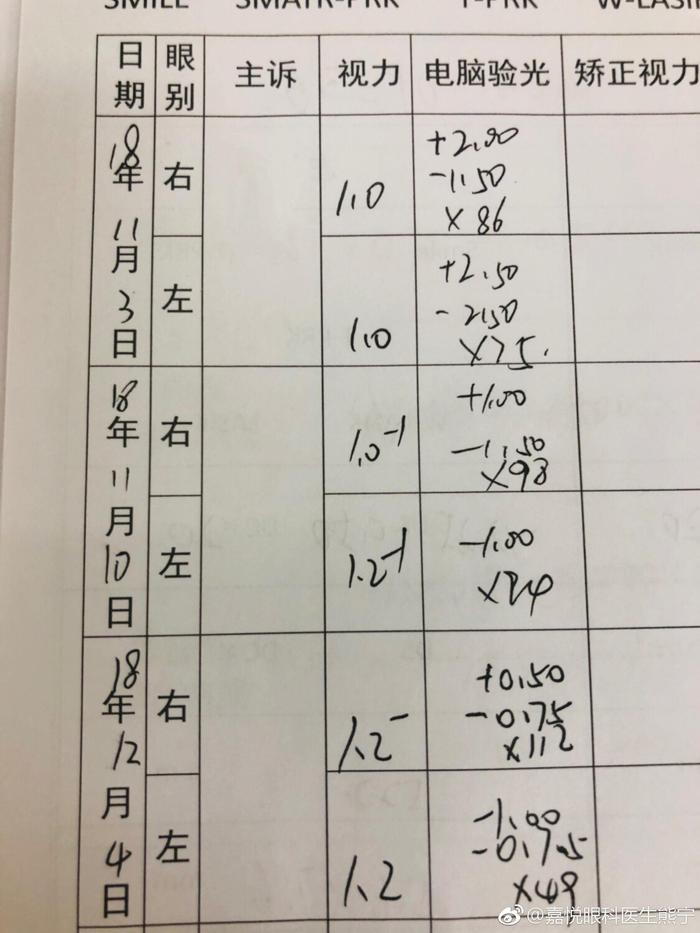 SMILE SMATR-PRK T-PRK W-LASIK
日期 眼别 主诉 视力 电脑验光 矫正视力
18年11月3日
右 1.0 +2.00
-1.50
×86
左 1.0 +2.50
-2.50
×75.
18年11月10日
右 1.0⁻¹ +1.00
-1.50
×98
左 1.2⁻¹ -1.00
×84
18年12月4日
右 1.2⁻ +0.50
-0.75
×112
左 1.2 -1.00
-0.75
×49
@嘉悦眼科医生熊宁